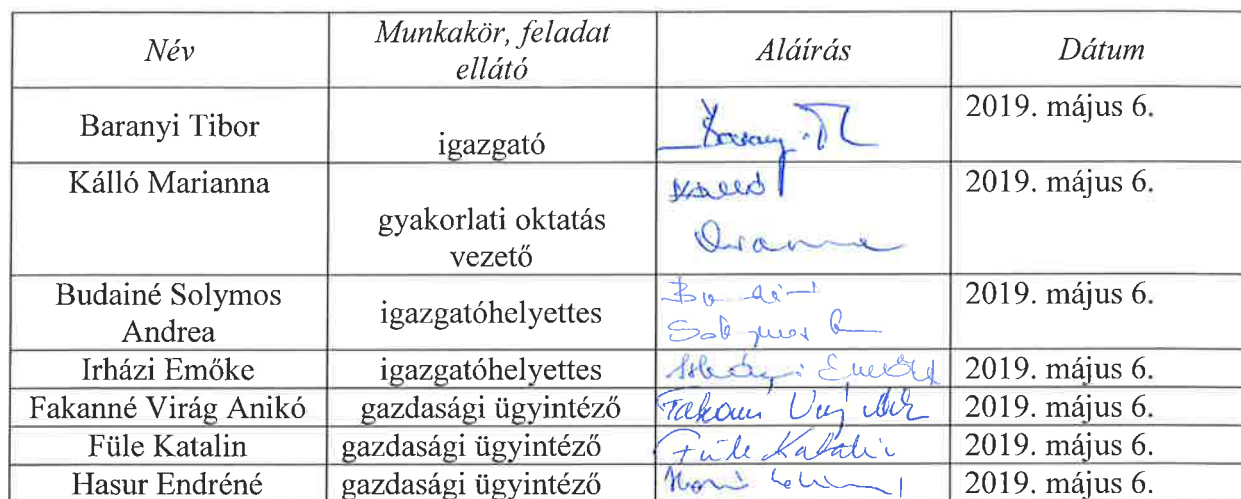 Név Munkakör, feladat ellátó Aláírás Dátum
Baranyi Tibor igazgató 2019. május 6.
Kálló Marianna gyakorlati oktatás vezető Kálló 2019. május 6.
Budainé Solymos Andrea igazgatóhelyettes 2019. május 6.
Irházi Emőke igazgatóhelyettes 2019. május 6.
Fakanné Virág Anikó gazdasági ügyintéző 2019. május 6.
Füle Katalin gazdasági ügyintéző Füle Katalin 2019. május 6.
Hasur Endréné gazdasági ügyintéző 2019. május 6.